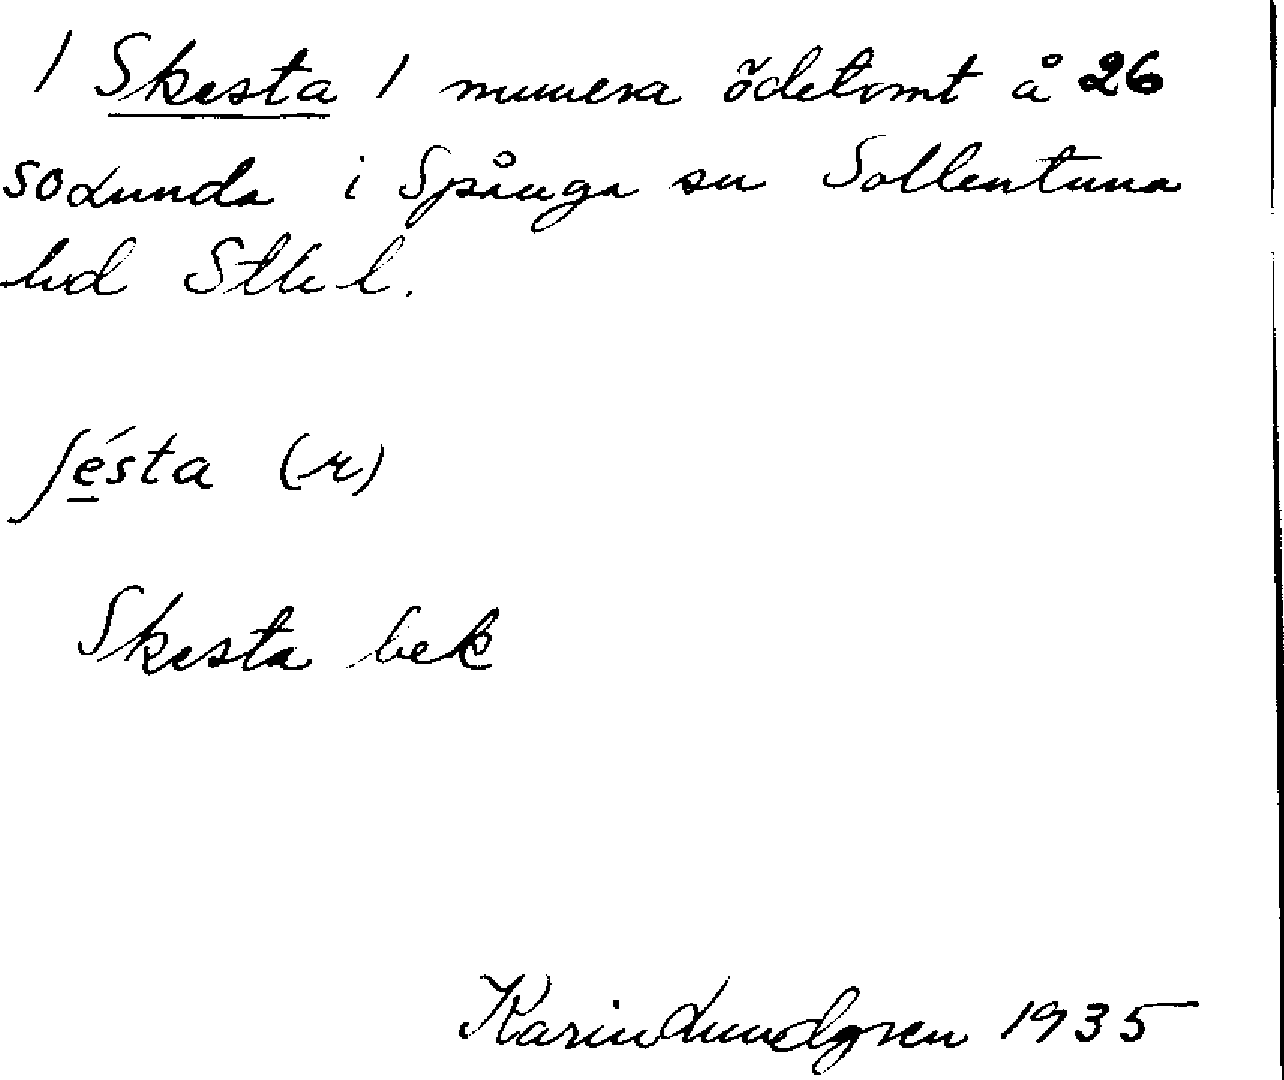 / Skesta / numera ödetomt å 26
Solunda i Spånga sn Sollentuna
hd Sthl l.
ʃésta (r)
Skesta bek
Karin Lundgren 1935